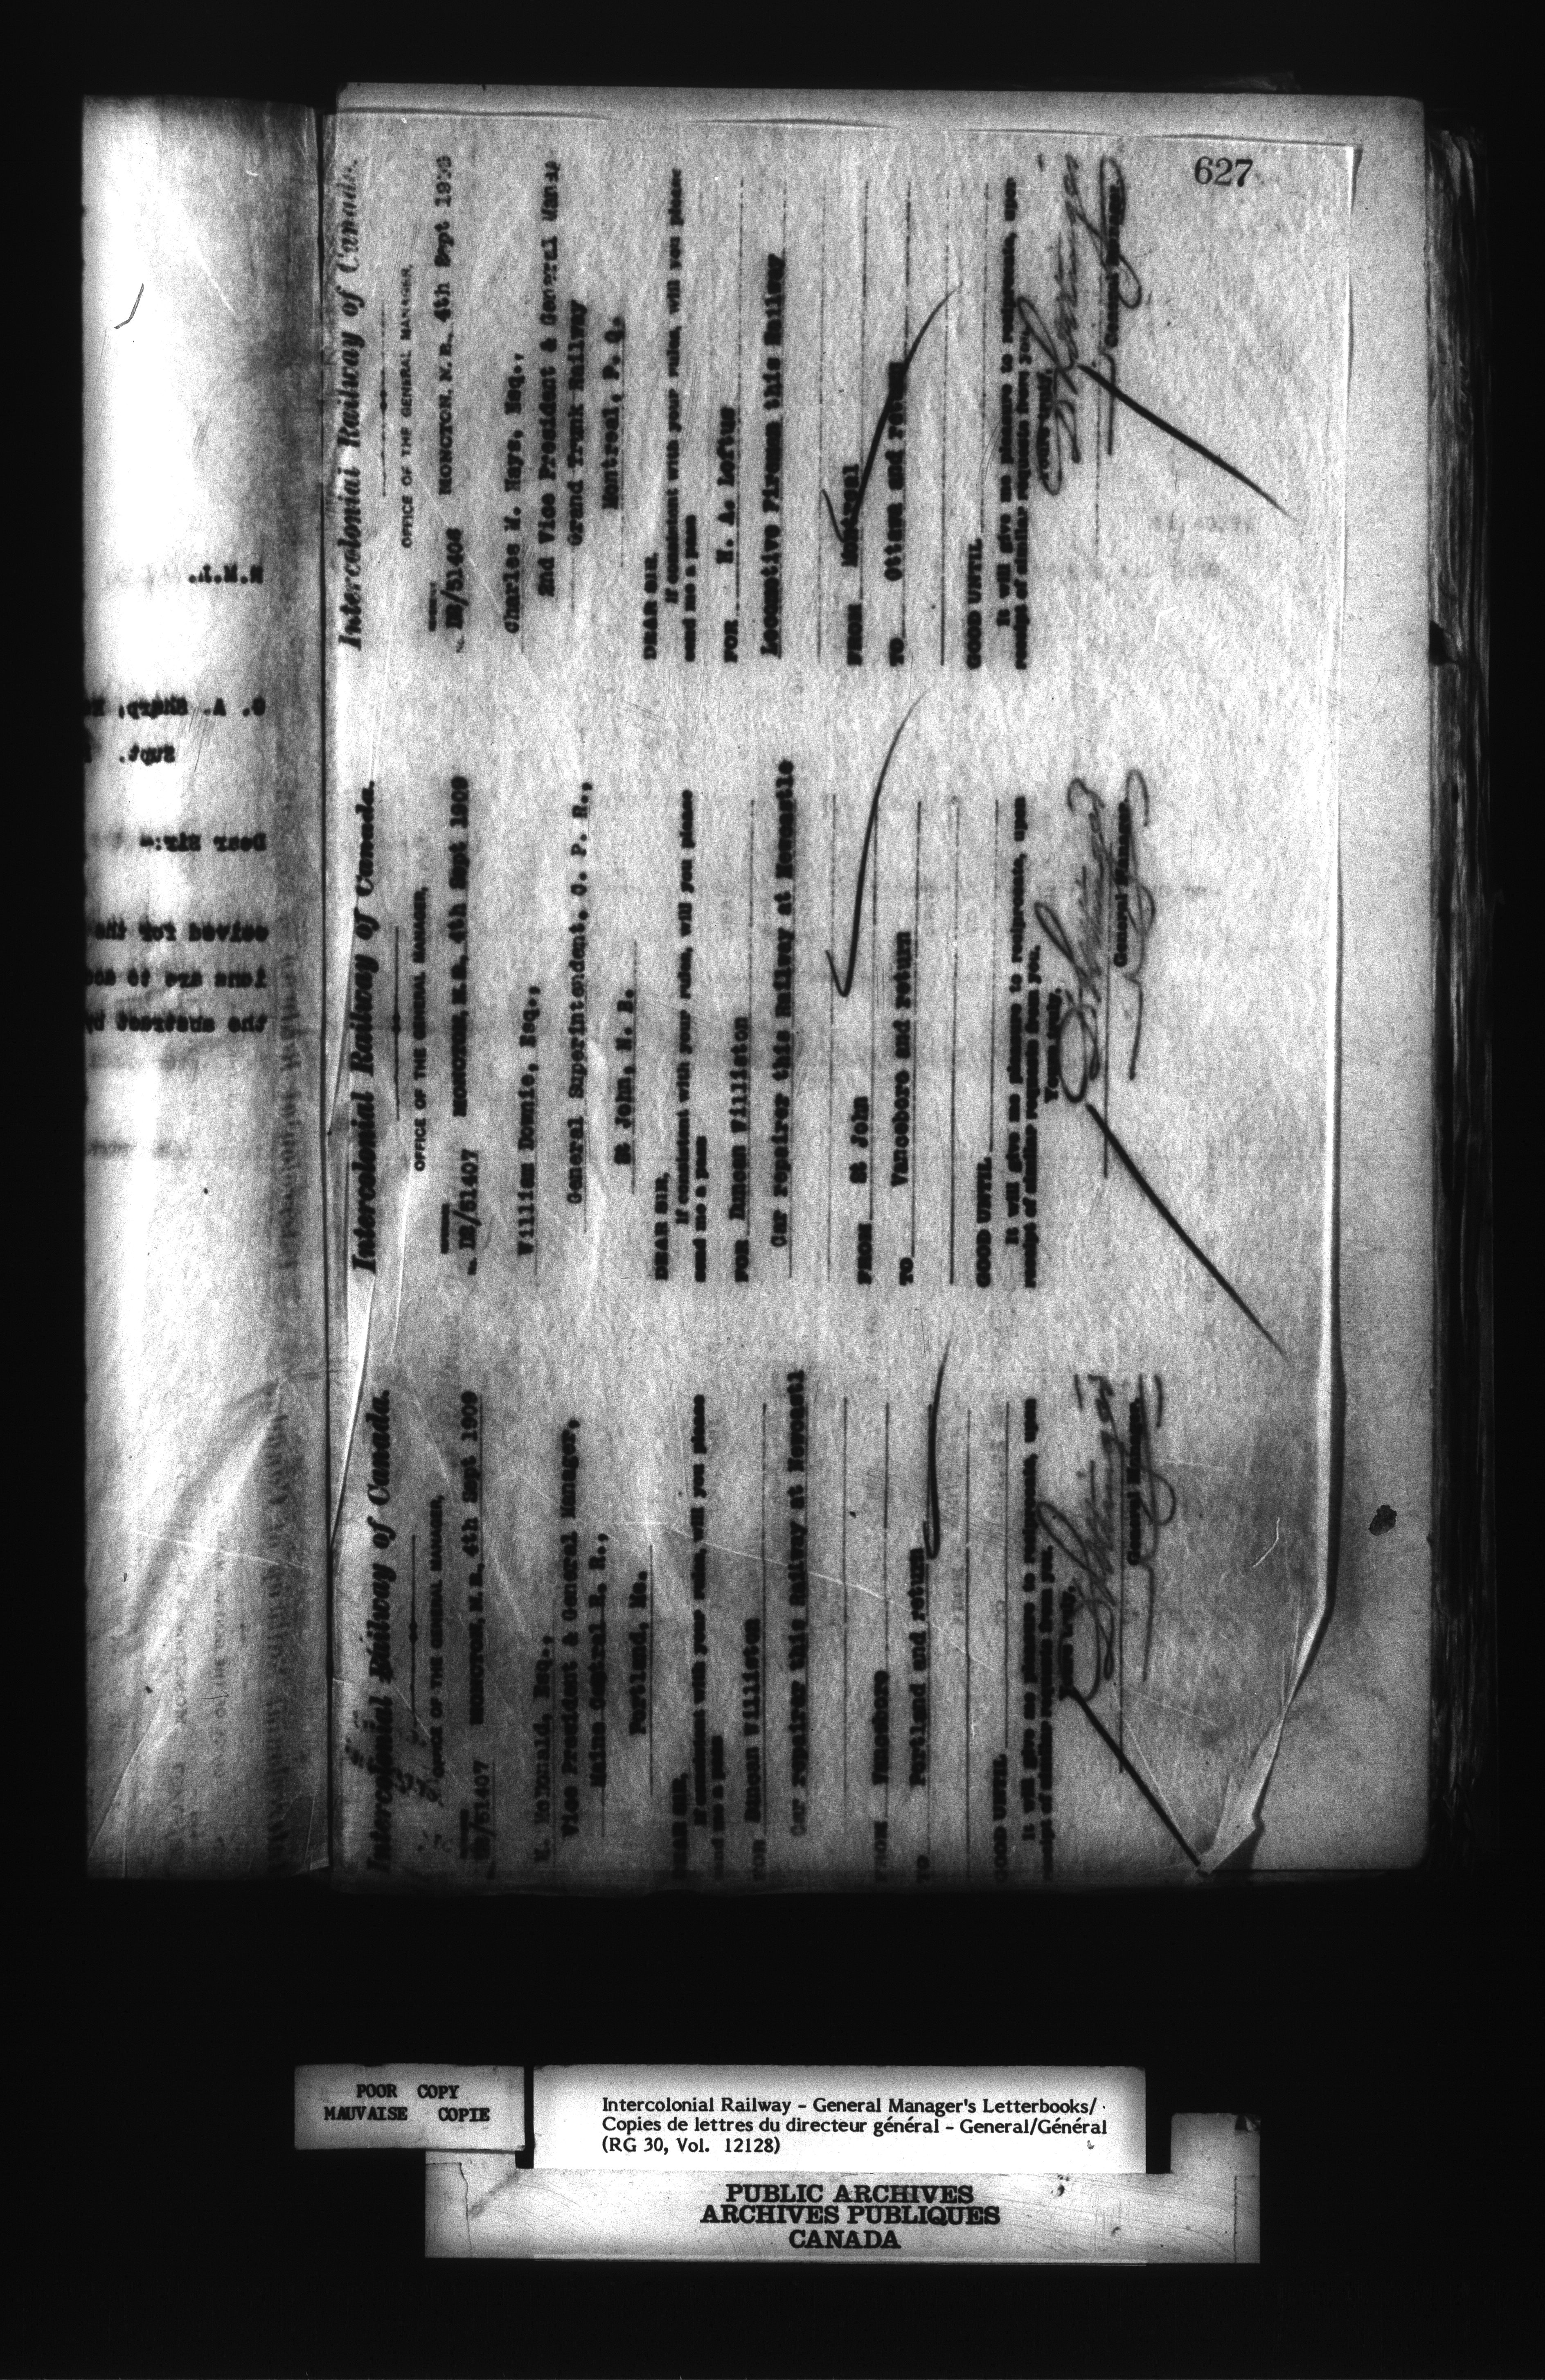 627
Intercolonial Railway of Canada.
OFFICE OF THE GENERAL MANAGER,
MONCTON, N.B., 4th Sept 1909
DB/51407
McDonald, Esq.,
Vice President & General Manager,
Maine Central R. R.,
Portland, Me.
DEAR SIR,
If consistent with your rules, will you please
send me a pass
FOR Duncan Williston
Car repairer this Railway at Newcastl
FROM Vanceboro
TO Portland and return
GOOD UNTIL
It will give me pleasure to reciprocate, upon
receipt of similar requests from you.
Yours truly,
General Manager.
Intercolonial Railway of Canada.
OFFICE OF THE GENERAL MANAGER,
MONCTON, N.B., 4th Sept 1909
DB/51407
William Downie, Esq.,
General Superintendent, C. P. R.,
St John, N. B.
DEAR SIR,
If consistent with your rules, will you please
send me a pass
FOR Duncan Williston
Car repairer this Railway at Newcastle
FROM St John
TO Vanceboro and return
GOOD UNTIL
It will give me pleasure to reciprocate, upon
receipt of similar requests from you.
Yours truly,
General Manager.
Intercolonial Railway of Canada.
OFFICE OF THE GENERAL MANAGER,
MONCTON, N.B., 4th Sept
DB/51406
Charles M. Hays, Esq.,
2nd Vice President & General Manag
Grand Trunk Railway
Montreal, P. Q.
DEAR SIR,
If consistent with your rules, will you please
send me a pass
FOR H. A. Loftus
Locomotive Fireman this Railway
FROM Montreal
TO Ottawa and return
GOOD UNTIL
It will give me pleasure to reciprocate, upon
receipt of similar requests from you.
Yours truly,
General Manager.
G. A. Sharp,
Supt.
Dear Sir:-
ceived for the
ions are to
the abstract by
POOR COPY
MAUVAISE COPIE
Intercolonial Railway - General Manager's Letterbooks/
Copies de lettres du directeur général - General/Général
(RG 30, Vol. 12128)
PUBLIC ARCHIVES
ARCHIVES PUBLIQUES
CANADA